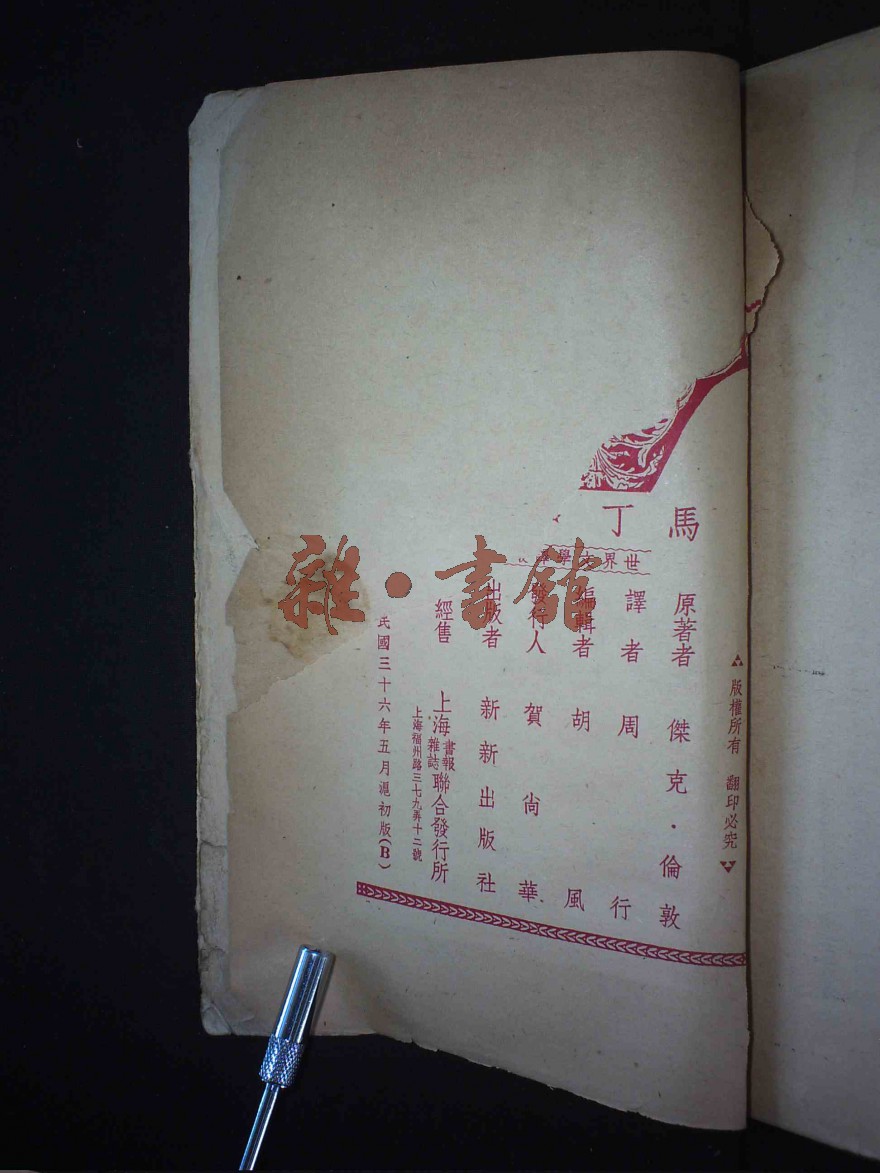 馬丁
世界文學
版權所有 翻印必究
原著者 傑克·倫敦
譯者 周行
編輯者 胡風
發行人 賀尙華
出版者 新新出版社
經售 上海書報雜誌聯合發行所
上海福州路三七九弄十二號
民國三十六年五月滬初版(B)
雜·書館